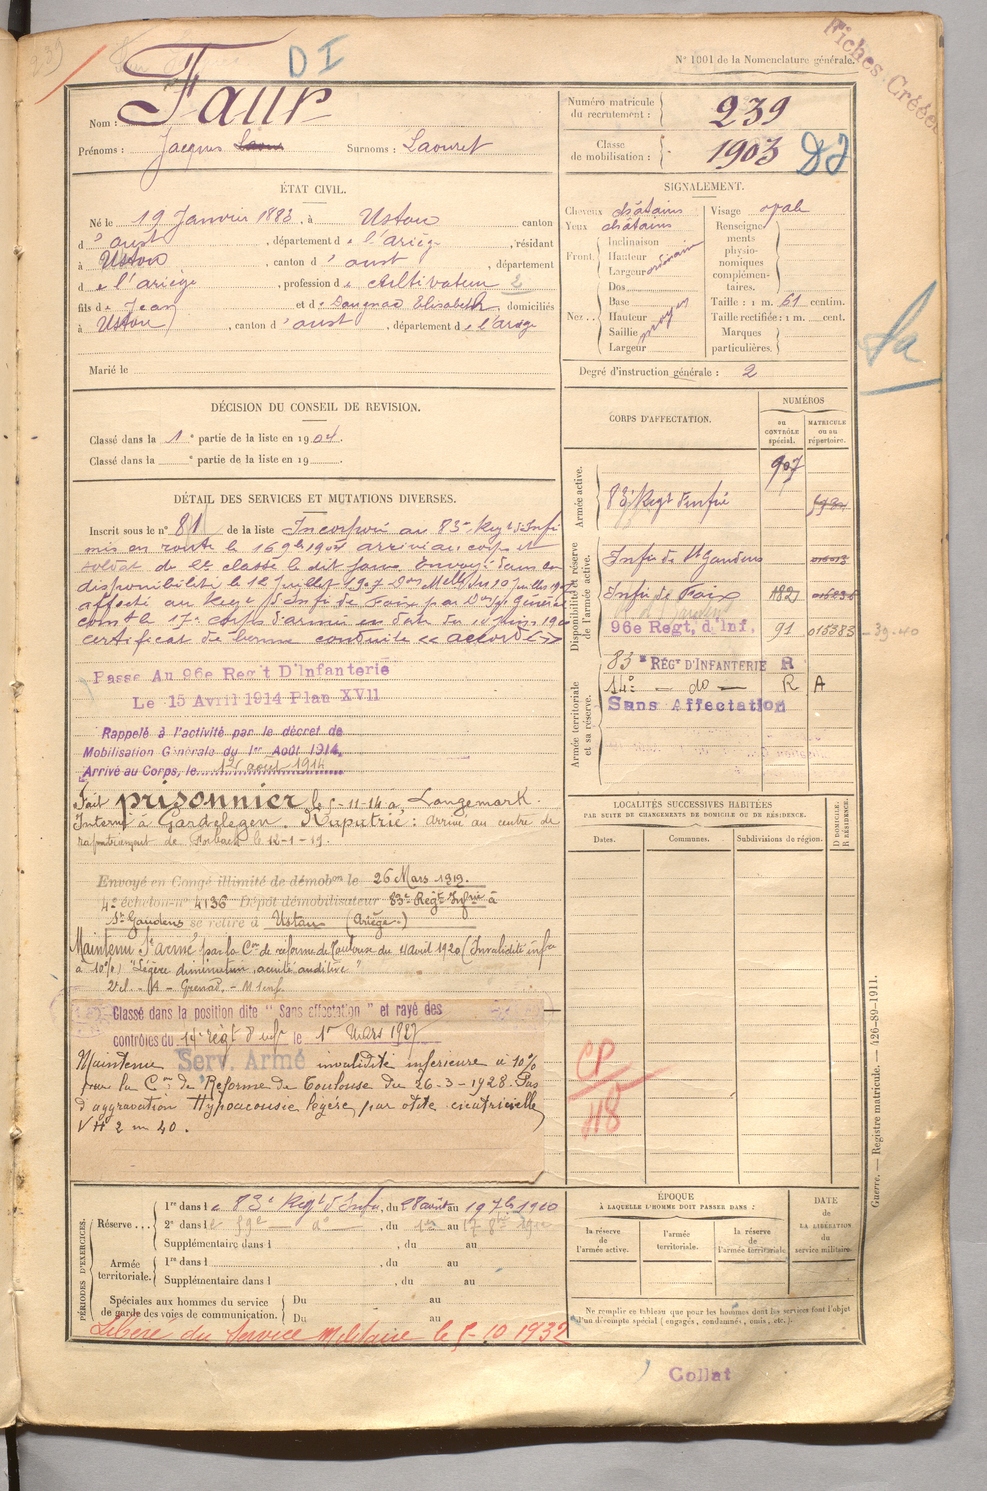 239
D I
N° 1001 de la Nomenclature générale.
Fiches Créées
Nom : Faur
Prénoms : Jacques Surnoms : Laouret
Numéro matricule du recrutement : 239
Classe de mobilisation : 1903
ÉTAT CIVIL.
Né le 19 Janvier 1883, à Ustou canton
d'oust, département de l'ariège, résidant
à Ustou, canton d'oust, département
de l'ariège, profession de Cultivateur 2
fils de Jean et de Dougnac Elisabeth, domiciliés
à Ustou, canton d'oust, département de l'ariège
Marié le
SIGNALEMENT.
Cheveux châtains
Yeux châtains
Front. Inclinaison
Hauteur
Largeur ordinaire
Nez. Dos
Base
Hauteur moyen
Saillie
Largeur
Visage ovale
Renseignements physionomiques complémentaires.
Taille : 1 m. 61 centim.
Taille rectifiée : 1 m. cent.
Marques particulières.
Degré d'instruction générale : 2
DÉCISION DU CONSEIL DE REVISION.
Classé dans la 1e partie de la liste en 1904.
Classé dans la e partie de la liste en 19
DÉTAIL DES SERVICES ET MUTATIONS DIVERSES.
Inscrit sous le n° 81 de la liste Incorporé au 83e Regt d'Infie
mis en route le 16 9bre 1904 arrivé au corps et
soldat de 2e classe le dit jour. Envoyé dans la
disponibilité le 12 Juillet 1907
affecté au Regt d'Infie de Foix par Général
Comt le 17e corps d'armée en date du
certificat de bonne conduite « accordé »
Passé Au 96e Reg't D'Infanterie
Le 15 Avril 1914 Plan XVII
Rappelé à l'activité par le décret de
Mobilisation Générale du 1er Août 1914,
Arrivé au Corps, le août 1914
Fait prisonnier le 5-11-14 à Langemark.
Interné à Gardelegen. Rapatrié : arrivé au centre de
rapatriement de Forbach le 12-1-19.
Envoyé en Congé illimité de démobon le 26 Mars 1919.
4e échelon n° 4136 Dépôt démobilisateur 83e Regt Infie à
St Gaudens se retire à Ustou (Ariège)
Maintenu St armé par la Con de réforme de Toulouse du 4 avril 1920 (Invalidité infre
à 10%) "Légère diminution acuité auditive"
Classé dans la position dite " Sans affectation " et rayé des
contrôles du 14e regt d'infie le 1er Mars 1927
Maintenu Serv. Armé invalidité inférieure à 10%
par la Con de Réforme de Toulouse du 26-3-1928. Pas
d'aggravation Hypoacousie légère par otite cicatricielle
CORPS D'AFFECTATION.
NUMÉROS
au CONTRÔLE spécial.
MATRICULE ou au répertoire.
Armée active.
907
83e Regt d'Infie
Disponibilité et réserve de l'armée active.
Infie de St Gaudens
Infie de Foix 1827
96e Regt, d'Inf. 91 015383 - 39-40
Armée territoriale et sa réserve.
83e RÉGt D'INFANTERIE R
14e — do — R A
Sans Affectation
LOCALITÉS SUCCESSIVES HABITÉES
PAR SUITE DE CHANGEMENTS DE DOMICILE OU DE RÉSIDENCE.
D DOMICILE.
R RÉSIDENCE.
Dates. Communes. Subdivisions de région.
CP
H8
PÉRIODES D'EXERCICES.
Réserve . . . 1re dans le 83e Regt d'Infie, du 28 août au 19 7bre 1910
2e dans le 59e, du au 17
Supplémentaire dans l , du au
Armée territoriale. 1re dans l , du au
Supplémentaire dans l , du au
Spéciales aux hommes du service de garde des voies de communication. Du au
Du au
Libéré du Service Militaire le 5-10-1932
ÉPOQUE
À LAQUELLE L'HOMME DOIT PASSER DANS :
la réserve de l'armée active.
l'armée territoriale.
la réserve de l'armée territoriale
DATE de LA LIBÉRATION du service militaire.
Ne remplir ce tableau que pour les hommes dont les services font l'objet
d'un décompte spécial (engagés, condamnés, omis, etc.).
Guerre. — Registre matricule. — 426-89-1911.
Collat